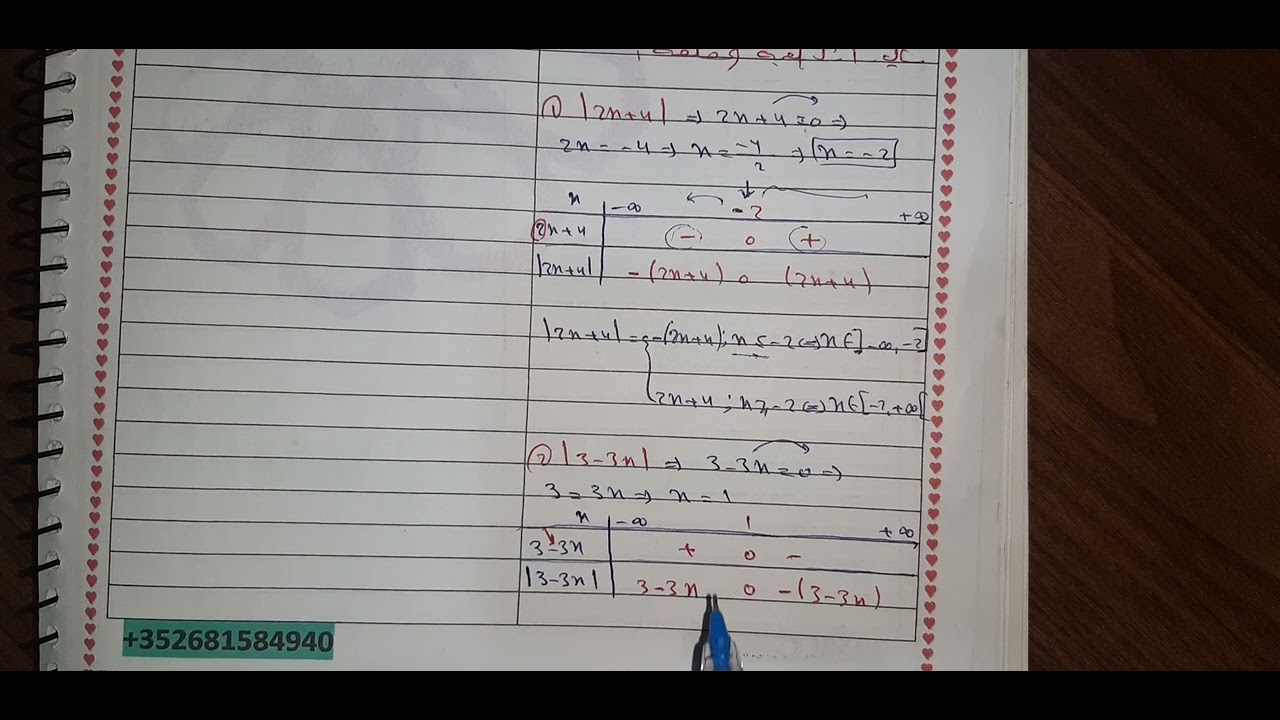 ① |2x+4| ⇒ 2x+4=0 ⇒
2x=-4 ⇒ x=-4/2 ⇒ x=-2
x -∞ -2 +∞
2x+4 - 0 +
|2x+4| -(2x+4) 0 (2x+4)
|2x+4|={ -(2x+4); x≤-2 ⇔ x∈]-∞,-2]
2x+4; x≥-2 ⇔ x∈[-2,+∞[
② |3-3x| ⇒ 3-3x=0 ⇒
3=3x ⇒ x=1
x -∞ 1 +∞
3-3x + 0 -
|3-3x| 3-3x 0 -(3-3x)
+352681584940